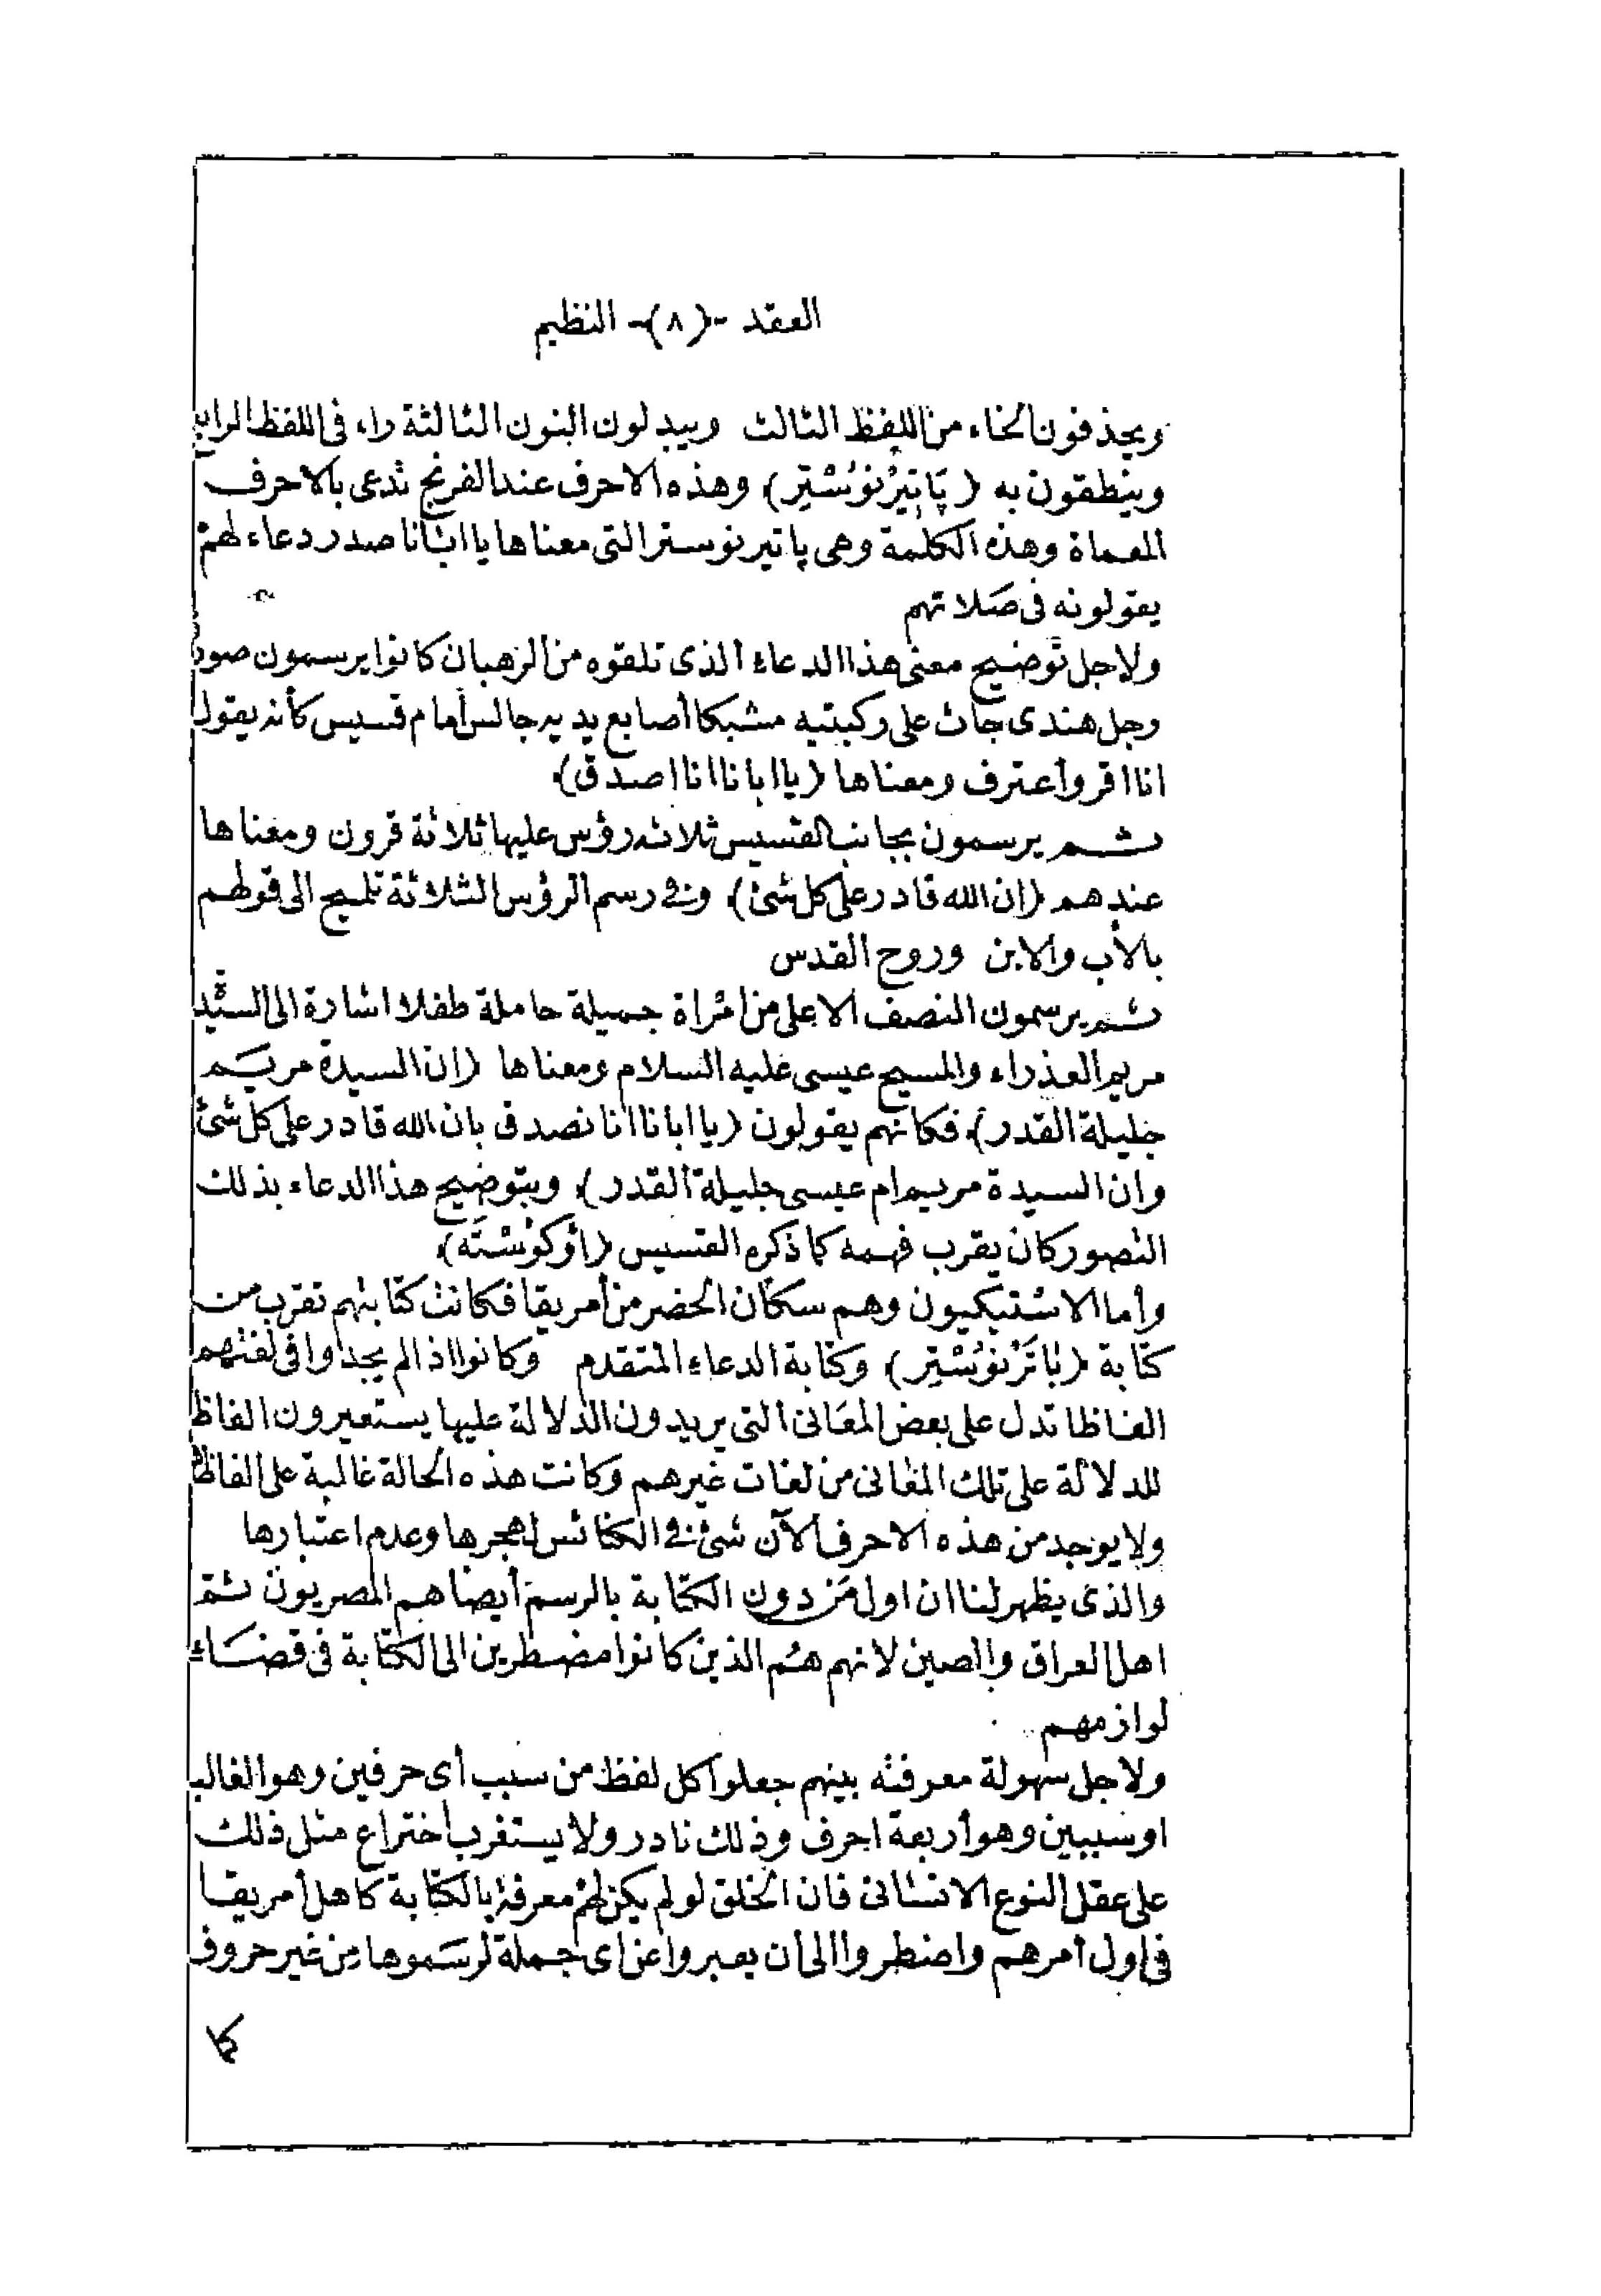 العقد -(٨)- النظيم
ويحذفون الخاء من اللفظ الثالث ويبدلون النون الثالثة راء فى اللفظ الرابع
وينطقون به (پَاتِيرْنُوسْتِر) وهذه الاحرف عند الفرنج تدعى بالاحرف
المعماة وهذه الكلمة وهى پاتير نوستر التى معناها يا ابانا صدر دعاء لهم
يقولونه فى صلاتهم
ولاجل توضيح معنى هذا الدعاء الذى تلقوه من الرهبان كانوا يرسمون صور
رجل هندى جاث على ركبتيه مشبكا أصابع يديه جالس أمام قسيس كأنه يقول
انا اقر وأعترف ومعناها (يا ابانا انا اصدق)
ثم يرسمون بجانب القسيس ثلاثه رؤس عليها ثلاثة قرون ومعناها
عندهم (ان الله قادر على كل شئ) وفى رسم الرؤس الثلاثة تلميح الى قولهم
بالأب والابن وروح القدس
ثم يرسمون النصف الاعلى من امرأة جميلة حاملة طفلا اشارة الى السيدة
مريم العذراء والمسيح عيسى عليه السلام ومعناها (ان السيدة مريم
جليلة القدر) فكانهم يقولون (يا ابانا انا نصدق بان الله قادر على كل شئ
وان السيدة مريم ام عيسى جليلة القدر) وبتوضيح هذا الدعاء بذلك
التصور كان يقرب فهمه كما ذكره القسيس (اوكوشته)
وأما الاشتيكيون وهم سكان الحضر من أمريقا فكانت كتابتهم تقرب من
كتابة (پاتَرْنُوسْتِر) وكتابة الدعاء المتقدم وكانوا اذا لم يجدوا فى لغتهم
الفاظا تدل على بعض المعانى التى يريدون الدلالة عليها يستعيرون الفاظا
للدلالة على تلك المعانى من لغات غيرهم وكانت هذه الحالة غالبة على الفاظهم
ولا يوجد من هذه الاحرف الآن شئ فى الكنائس لهجرها وعدم اعتبارها
والذى يظهر لنا ان اول من دون الكتابة بالرسم أيضا هم المصريون ثم
اهل العراق والصين لانهم هم الذين كانوا مضطرين الى الكتابة فى قضاء
لوازمهم
ولاجل سهولة معرفته بينهم جعلوا كل لفظ من سبب أى حرفين وهو الغالب
او سببين وهو أربعة احرف وذلك نادر ولا يستغرب اختراع مثل ذلك
على عقل النوع الانسانى فان الخلق لو لم يكن لهم معرفة بالكتابة كاهل أمريقا
فى اول أمرهم واضطروا الى أن يعبروا عن اى جملة لرسموها من غير حروف
كا